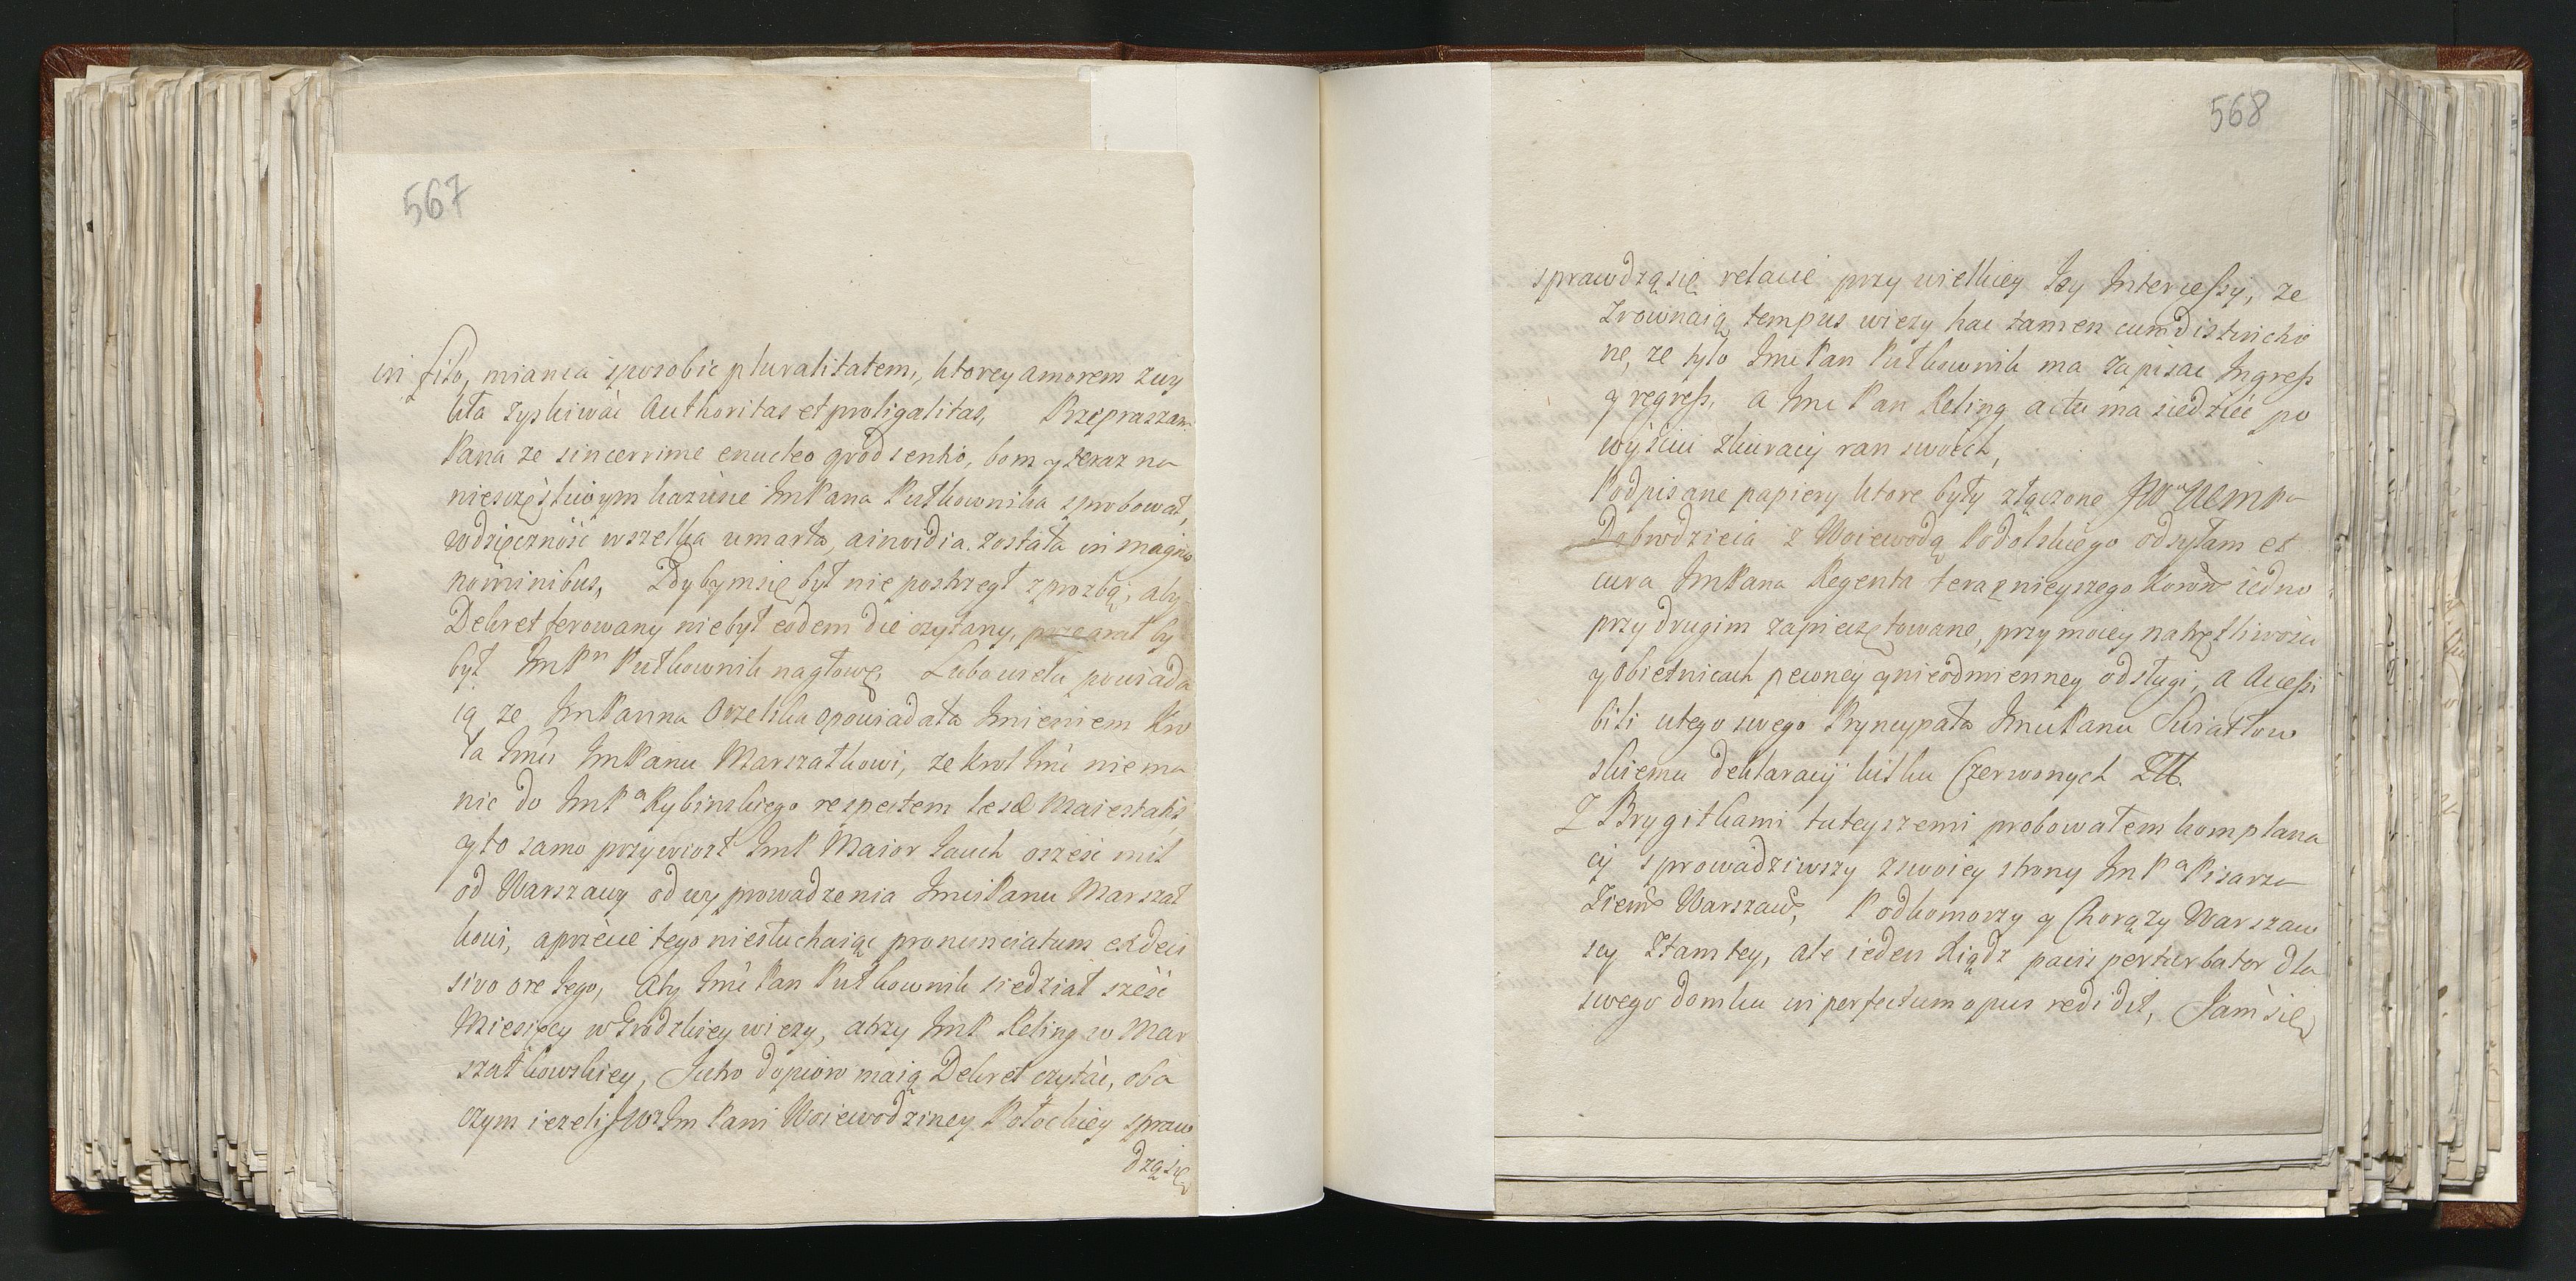 567
in filo, miania sposobie pluralitatem, ktorey amorem zwy
kła zyskiwać Authoritas et proligalitas, Przepraszam
Pana ze sincerrime enucleo grodsenko, bom y teraz na
nieszczęśliwym kazusie ImPana Putkownika sprobował,
wdzięczność wszelka umarła, a invidia została in magnis
nominibus, Zdybymsię był nie postrzegł z prozbą, aby
Dekret ferowany niebył eodem die czytany, przegrał by
był ImPn Putkownik nagłowę, Lubowiela powiada
ią ze ImPanna Orzelska opowiadała Imieniem Kro
la Imći ImPanu Marszałkowi, ze Krol Imć niema
nic do ImPa Rybinskiego respectem lesæ Maiestatis,
y to samo przywiozł ImP Maior Lauch osześć mil
od Warszawy od wyprowadzenia ImciPanu Marszał
kowi, aprzecie tego niesłuchaiąc pronunciatum ex deci
sivo ore tego, Aby Imć Pan Putkownik siedział sześć
Miesięcy w Grodzkiey wiezy, atrzy ImP Keling w Mar
szałkowskiey, Jutro dopioro maią Dekret czytać, oba
czym iezeli JWIm Pani Woiewodziney Połockiey spraw
dząsię
568
sprawdząsię relacie przy wielkiey Iey Intercessy, ze
Zrownaią tempus wiezy hac tamen cum distinctio
ne, ze tylo ImciPan Putkownik ma zapisac Ingress
y regress, a Imci Pan Keling actu ma siedzieć po
wyiściu zkuracij ran swoich,
Podpisane papiery ktore były złączone JWWImPa
Dobrodzieia z Woiewodą Podolskiego odsyłam et
cura ImPana Regenta teraznieyszego Koronn iedno
przy drugim zapieczętowane, przy moiey natrętliwości
y obietnicach pewney y nieodmienney odsługi, a Accessi
bili utego swego Pryncypała ImciPanu Swiatłow
skiemu deklaracij kilku Czerwonych Złł.
Z Brygitkami tuteyszemi probowałem komplana
cij sprowadziwszy zswoiey strony ImPa Pisarza
Ziem Warszaw, Podkomorzy y Chorązy Warszaw
scy ztamtey, ale ieden Xiądz pacis perturbator dla
swego domku in perfectum opus redidit, Jam się